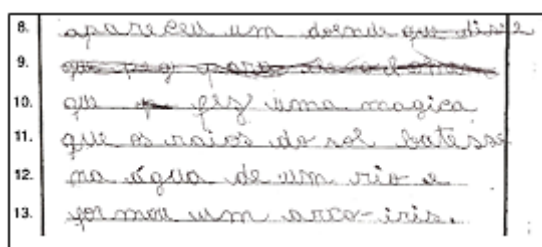 8. apareceu um doende que disse
9. que
10. que fez uma magica
11. que os raios do sol batesse
12. na água de um rio e
13. formou um arco-iris.